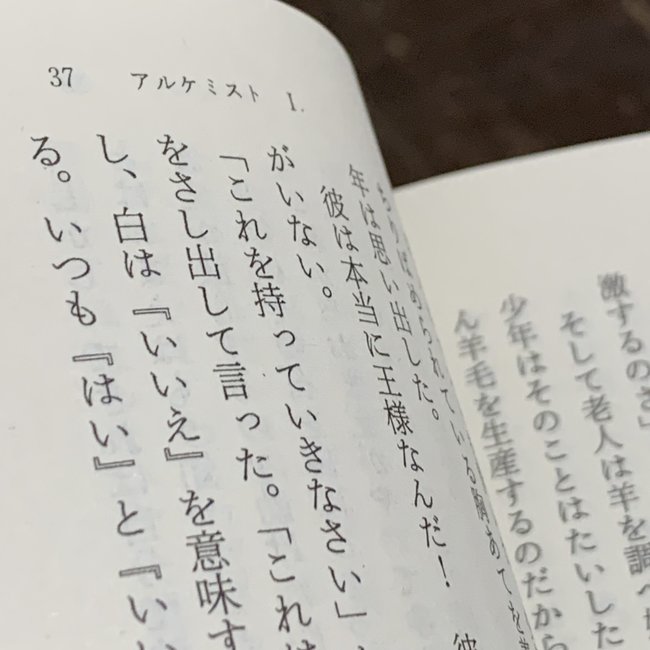 激するのさ」
そして老人は羊を調べ
少年はそのことはたいした
ん羊毛を生産するのだから
37 アルケミスト I.
ちりばめられている胸あてを
年は思い出した。
彼は本当に王様なんだ！ 彼
がいない。
「これを持っていきなさい」
をさし出して言った。「これは
し、白は『いいえ』を意味す
る。いつも『はい』と『い